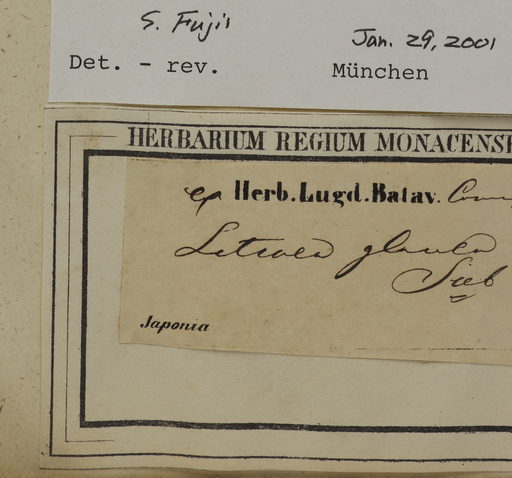 S. Fujii
Jan. 29, 2001
Det. - rev.
München
HERBARIUM REGIUM MONACENSE
ex Herb. Lugd. Batav. Com
Litsaea glauca
Sieb
Japonia